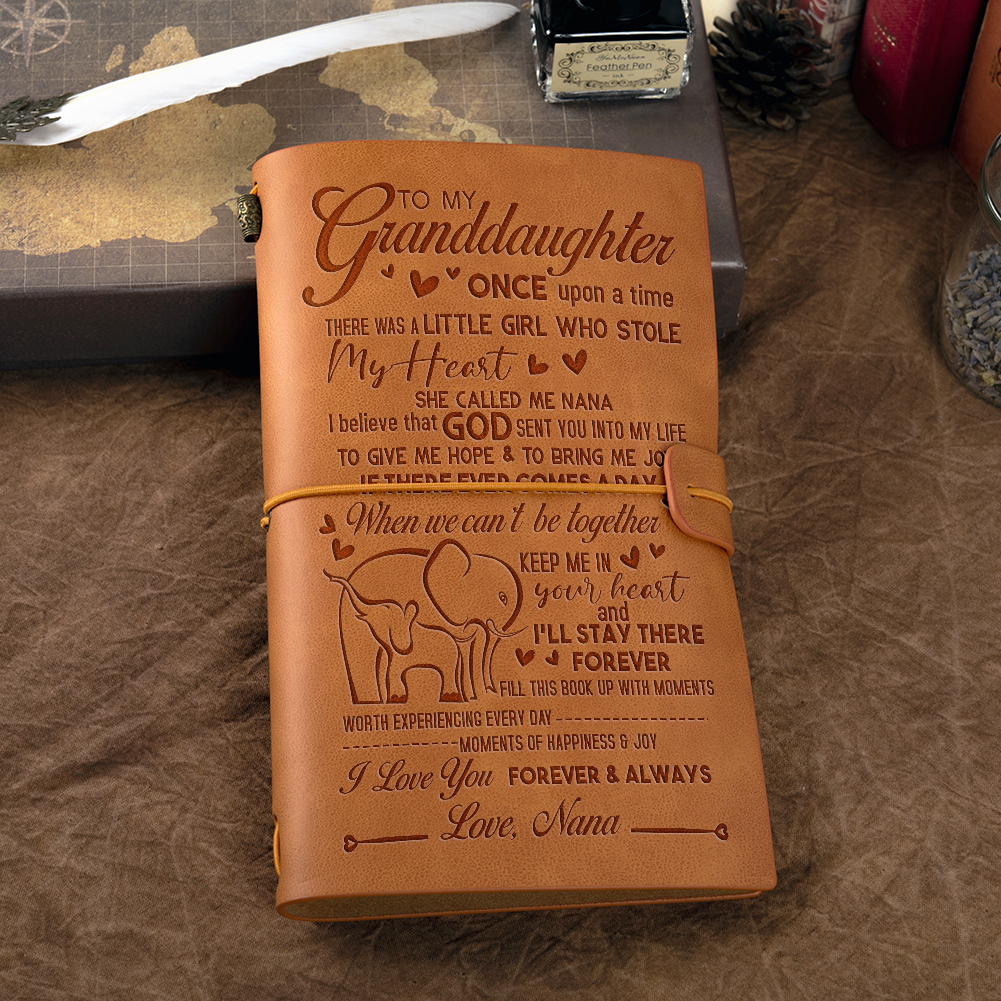 Feather Pen
ink
TO MY
Granddaughter
ONCE upon a time
THERE WAS A LITTLE GIRL WHO STOLE
My Heart
SHE CALLED ME NANA
I believe that GOD SENT YOU INTO MY LIFE
TO GIVE ME HOPE & TO BRING ME JO
IF THERE EVER COMES A DAY
When we can't be together
KEEP ME IN
your heart
and
I'LL STAY THERE
FOREVER
FILL THIS BOOK UP WITH MOMENTS
WORTH EXPERIENCING EVERY DAY
MOMENTS OF HAPPINESS & JOY
I Love You FOREVER & ALWAYS
Love, Nana